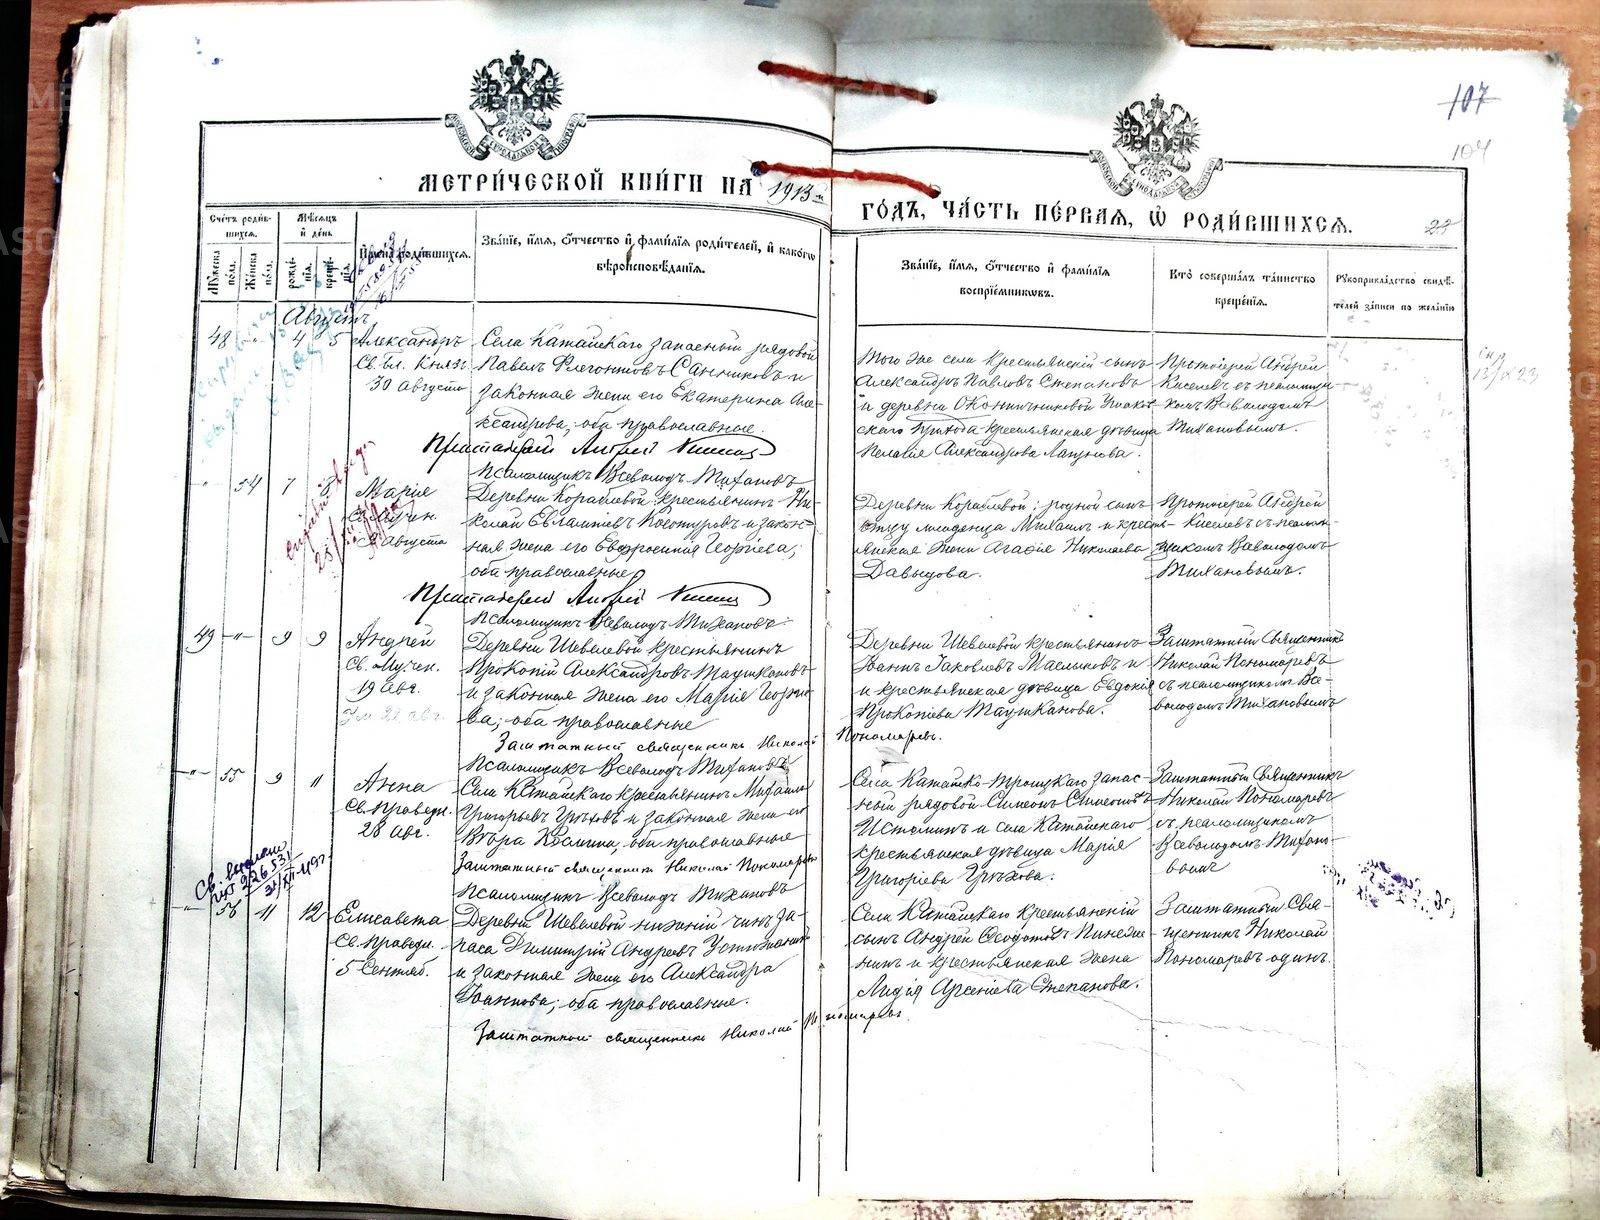 107
104
МЕТРИЧЕСКОЙ КНИГИ НА 1913 й
ГОДЪ, ЧАСТЬ ПЕРВАЯ, Ѡ РОДИВШИХСЯ.
Счетъ родив-
шихся.
Мѣсяцъ
и день.
Мужеска
пола.
Женска
пола.
рожде-
нія.
креще-
нія.
Имена родившихся.
Званіе, имя, отчество и фамилія родителей, и какого
вѣроисповѣданія.
Званіе, имя, отчество и фамилія
воспріемниковъ.
Кто совершалъ таинство
крещенія.
Рукоприкладство свидѣ-
телей записи по желанію
Августъ
48 -"- 4 5
Александръ
Св. Бл. Князь
30 августа
Села Катайскаго запасный рядовой
Павелъ Флегонтовъ Санниковъ и
законная жена его Екатерина Але-
ксандрова, оба православные.
Протоіерей Андрей Киселевъ
Псаломщикъ Всеволодъ Тихановъ
Того же села крестьянскій сынъ
Александръ Павловъ Степановъ
и деревни Оконичниковой
скаго прихода крестьянская дѣвица
Пелагія Александрова
Протоіерей Андрей
Киселевъ съ псаломщи-
комъ Всеволодомъ
Тихановымъ.
-"- 54 7 8
Марія
Св. Мучен.
Августа
Деревни Кораблевой крестьянинъ Ни-
колай Евлампіевъ и закон-
ная жена его Евфросинія Георгіева;
оба православные
Протоіерей Андрей Киселевъ
Псаломщикъ Всеволодъ Тихановъ
Деревни Кораблевой: родной сынъ
отцу младенца Михаилъ и кресть-
янская жена Агафія Николаева
Давыдова.
Протоіерей Андрей
Киселевъ съ псалом-
щикомъ Всеволодомъ
Тихановымъ.
49 -"- 9 9
Андрей
Св. Мучен.
19 авг.
Деревни Шевелевой крестьянинъ
Прокопій Александровъ Таушкановъ
и законная жена его Марія Георгіе-
ва; оба православные
Заштатный священникъ Николай Пономаревъ.
Псаломщикъ Всеволодъ Тихановъ
Деревни Шевелевой крестьянинъ
Іоаннъ Іаковлевъ Масльіковъ и
и крестьянская дѣвица Евдокія
Прокопіева Таушканова.
Заштатный Священникъ
Николай Пономаревъ
съ псаломщикомъ Все-
володомъ Тихановымъ
-"- 55 9 11
Анна
Св. Праведн.
28 авг.
Села Катайскаго крестьянинъ Михаилъ
Григорьевъ Грѣховъ и законная жена его
Вѣра Космина, оба православные
Заштатный священникъ Николай Пономаревъ
Псаломщикъ Всеволодъ Тихановъ
Села Катайско-Троицкаго запас-
ный рядовой Симеонъ Симеоновъ
Истоминъ и села Катайскаго
крестьянская дѣвица Марія
Григоріева Грѣхова.
Заштатный Священникъ
Николай Пономаревъ
съ псаломщикомъ
Всеволодомъ Тихано-
вымъ
-"- 56 11 12
Елисавета
Св. Праведн.
5 Сентяб.
Деревни Шевелевой нижній чинъ за-
паса Димитрій Андреевъ
и законная жена его Александра
Іоаннова; оба православные.
Заштатный священникъ Николай Пономаревъ
Села Катайскаго крестьянскій
сынъ Андрей Ѳеодотовъ
и крестьянская жена
Лидія Арсеніева Степанова.
Заштатный Свя-
щенникъ Николай
Пономаревъ одинъ.